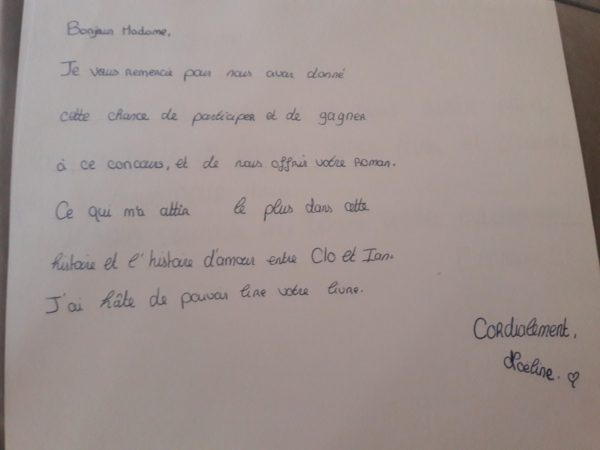 Bonjour Madame,
Je vous remercie pour nous avoir donné
cette chance de participer et de gagner
à ce concours, et de nous offrir votre roman.
Ce qui m'a attir le plus dans cette
histoire et l'histoire d'amour entre Clo et Ian.
J'ai hâte de pouvoir lire votre livre.
Cordialement,
Noéline. ♡